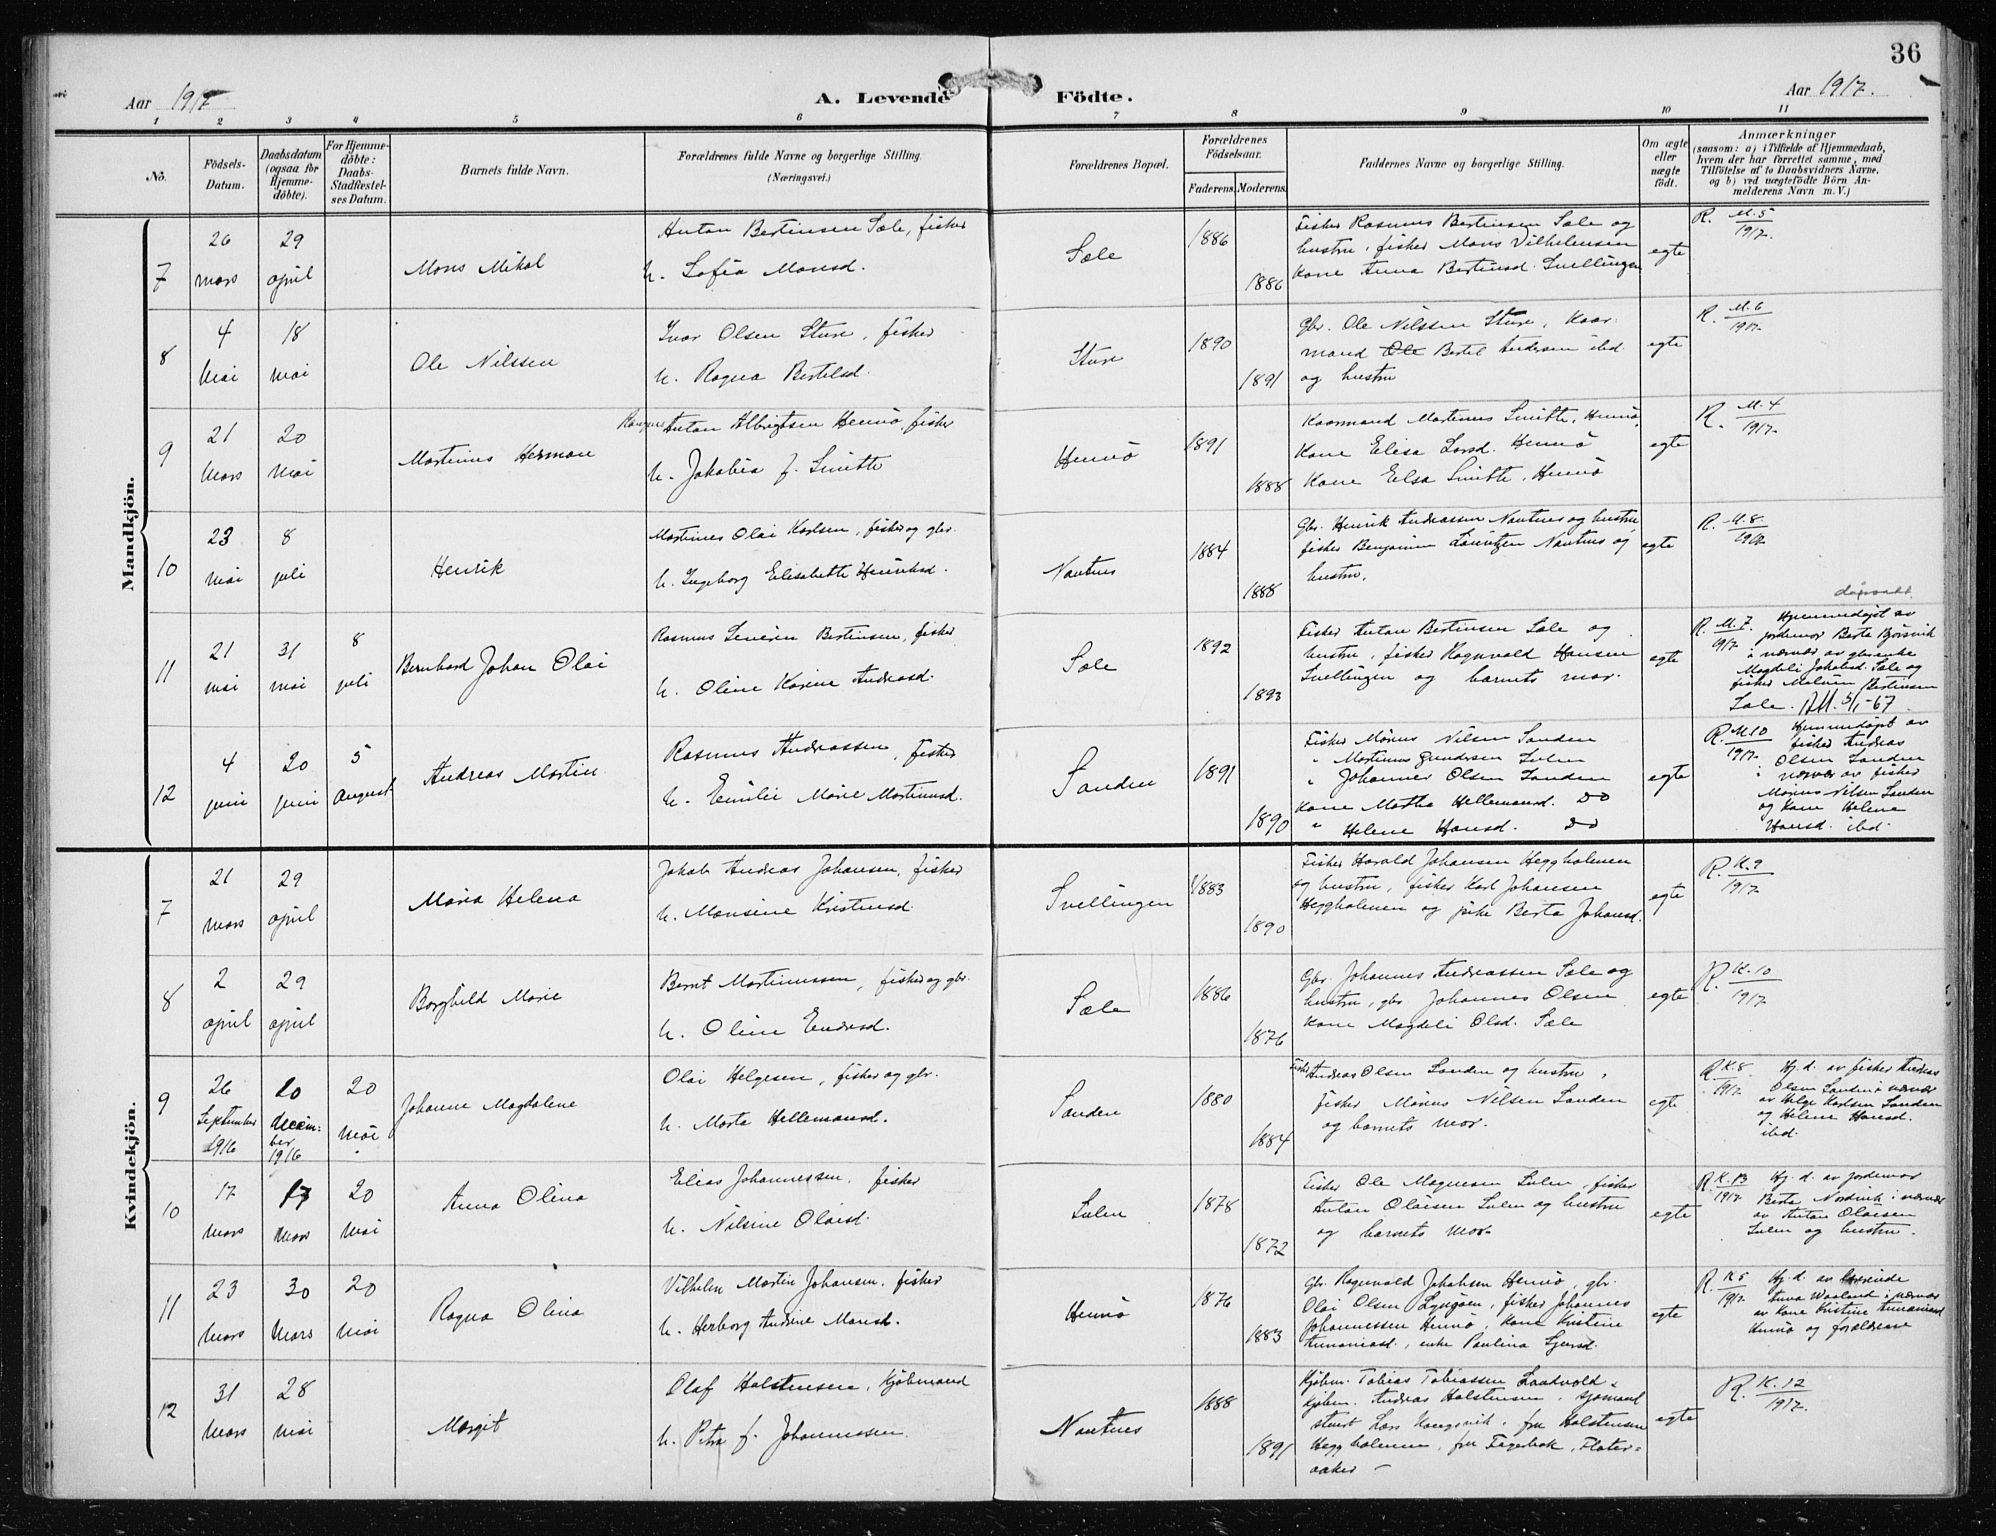 36
Aar 1917
A. Levende Födte.
Aar 1917.
1 2 3 4 5 6 7 8 9 10 11
No.
Födsels-
Datum.
Daabsdatum
(ogsaa for
Hjemme-
döbte).
For Hjemme-
döbte:
Daabs-
Stadfæstel-
ses Datum.
Barnets fulde Navn.
Forældrenes fulde Navne og borgerlige Stilling.
(Næringsvei.)
Forældrenes Bopæl.
Forældrenes
Födselsaar.
Faderens. Moderens.
Faddernes Navne og borgerlige Stilling.
Om ægte
eller
uægte
födt.
Anmærkninger
(saasom: a) i Tilfælde af Hjemmedaab,
hvem der har forrettet samme, med
Tilföielse af to Daabsvidners Navne,
og b) ved uægtefödte Börn An-
melderens Navn m. V.)
Mandkjön.
7
26
mars
29
april
Mons Mikal
Anton Bertinsen Sæle, fisker
h. Sofia Monsd.
Sæle
1886
1886
Fisker Rasmus Bertinsen Sæle og
hustru, fisker Mons Vilhelmsen
Kone Anna Bertinsd. Svellingen
egte
R. M. 5
1917.
8
4
mai
18
mai
Ole Nilssen
Ivar Olsen Sture, fisker
h. Ragna Bertelsd.
Sture
1890
1891
Gbr. Ole Nilssen Sture, Kaar-
mand Ole Bertel Andersen ibd
og hustru
egte
R. M. 6
1917.
9
21
Mars
20
mai
Martinus Herman
Anton Albrigtsen Hennö, fisker
h. Jakobia f. Smitth
Hennö
1891
1888
Kaarmand Martinus Smitth, Hennö,
Kone Elisa Larsd. Hennö
Kone Elsa Smitth, Hennö
egte
R. M. 4
1917.
10
23
mai
8
juli
Henrik
Martines Olai Karlsen, fisker og gbr.
h. Ingeborg Elisabeth Henriksd.
Nautnes
1884
1888
Gbr. Henrik Andreassen Nautnes og hustru,
fisker Benjamin Lauritzen Nautnes og
hustru.
egte
R. M. 8.
1917
11
21
mai
31
mai
8
juli
Bernhard Johan Olai
Rasmus Severin Bertinsen, fisker
h. Oline Karine Andreasd.
Sæle
1892
1893
Fisker Anton Bertinsen Sæle og
hustru, fisker Ragnvald Hansen
Svellingen og barnets mor.
egte
R. M. 7.
1917
Hjemmedöpt av
jordemor Berta
i nærvær av gbr.enke
Magdeli Jakobsd. Sæle og
fisker Bertinsen
Sæle. 5/1-67
12
4
juni
20
juni
5
August
Andreas Martin
Rasmus Andreassen, fisker
h. Emilie Marie Martinusd.
Sanden
1891
1890
Fisker Marius Nilsen Sanden
" Martinus Gundersen Sulen
" Johannes Olsen Sanden
Kone Martha Hellemansd. Do
" Helene Hansd. Do
egte
R. M. 10
1917.
Hjemmedöpt av
fisker Andreas
Olsen Sanden
i nærvær av fisker
Marius Nilsen Sanden
og kone Helene
Hansd. ibd.
Kvindekjön.
7
21
mars
29
april
Maria Helena
Jakob Andreas Johansen, fisker
h. Monsine Kristensd.
Svellingen
1883
1890
Fisker Harald Johansen Heggholmen
og hustru, fisker Karl Johansen
Heggholmen og pike Berta Johansd.
egte
R. K. 9
1917
8
2
april
29
april
Borghild Marie
Bernt Martinussen, fisker og gbr.
h. Oline Endresd.
Sæle
1886
1876
Gbr. Johannes Andreassen Sæle og
hustru, gbr Johannes Olsen
Kone Magdeli Olsd. Sæle
egte
R. K. 10
1917
9
26
September
1916
20
Decem-
ber
1916
20
mai
Johanne Magdalene
Olai Helgesen, fisker og gbr.
h. Marta Hellemansd.
Sanden
1880
1884
Fisker Andreas Olsen Sanden og hustru,
fisker Marius Nilsen Sanden
og barnets mor.
egte
R. K. 8
1917.
Hj. d. av fisker Andreas
Olsen Sanden i nærvær
av Helge Karlsen Sanden
og Helene Hansd.
ibd.
10
17
mars
17
mars
20
mai
Anna Olina
Elias Johannessen, fisker
h. Nilsine Olaisd.
Sulen
1878
1872
Fisker Ole Magnesen Sulen, fisker
Anton Olaisen Sulen og hustru
og barnets mor.
egte
R. K. 13
1917.
Hj. d. av jordemor
Berta Nordvik i nærvær
av Anton Olaisen
Sulen og hustru.
11
23
Mars
30
Mars
20
mai
Ragna Olina
Vilhelm Martin Johansen, fisker
h. Herborg Andrine Monsd.
Hennö
1876
1883
Gbr. Ragnvald Jakobsen Hennö, gbr.
Olai Olsen Lyngöen, fisker Johannes
Johannessen Hennö, kone Kristine
Annaniasd., enke Paulina Sjursd.
egte
R. K. 5
1917.
Hj. d. av
Anna i nærvær
av kone Kristine Annaniasd
Hennö og forældrene
12
31
Mars
28
mai
Margit
Olaf Halstensen, Kjöbmand
h. Petra f. Johannessen.
Nautnes
1888
1891
Kjöbm. Tobias Tobiassen Landvold,
kjöbm. Andreas Halstensen,
Lars fru Halstensen
Heggholmen, fru Fagerbak, Flater-
aaker –
egte
R. K. 12
1917.